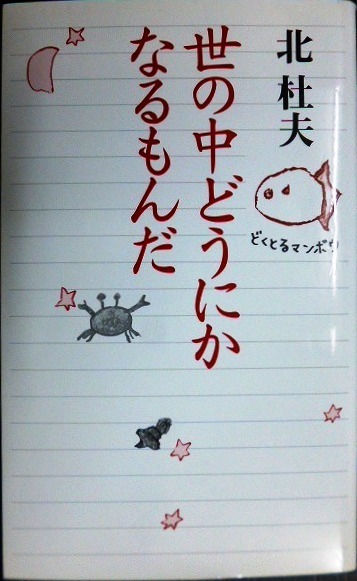 北 杜夫
世の中どうにか
なるもんだ
どくとるマンボウ